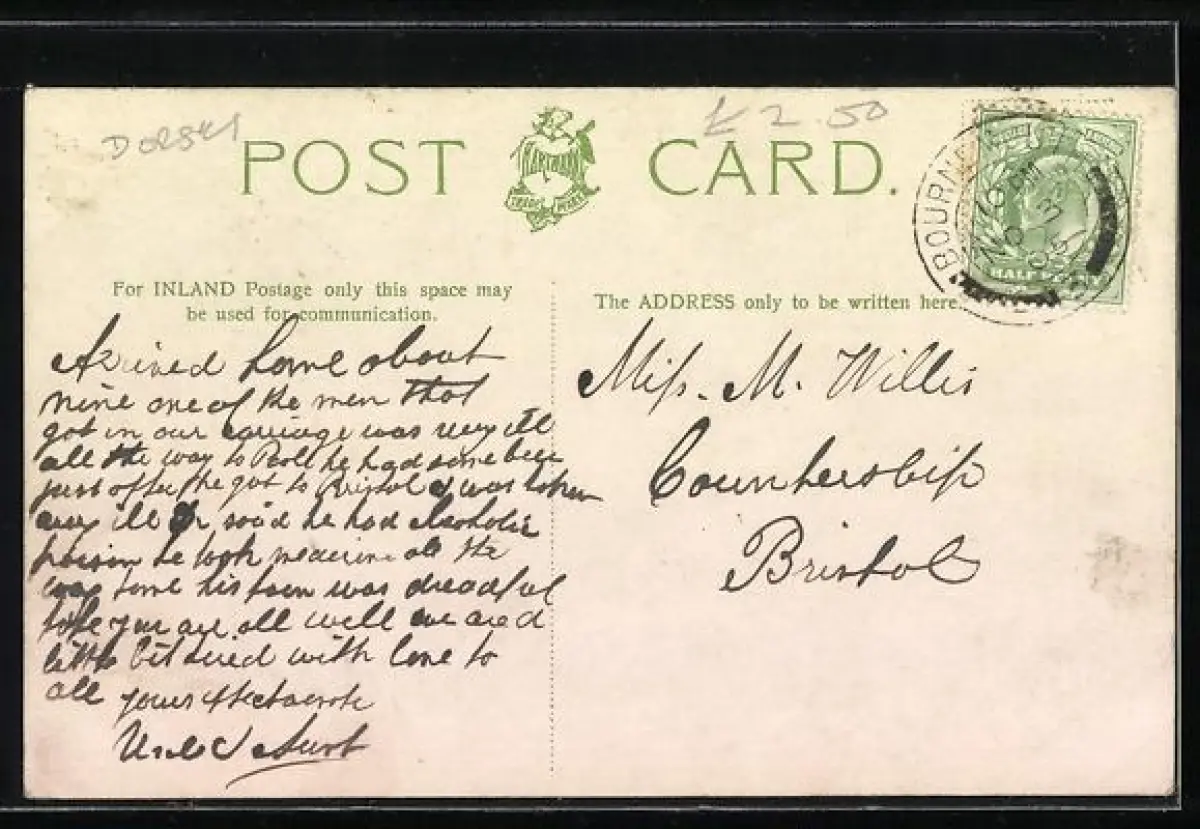 DORSET
£2.50
POST CARD.
HARTMANN
TRADE MARK
BOURNE
HALF PENNY
For INLAND Postage only this space may
be used for communication.
The ADDRESS only to be written here.
Arrived home about
nine one of the men that
got in our carriage was very ill
all the way to Poole he had some beer
just after he got to Bristol & was taken
very ill said he had alcoholic
poison he took medicine all the
way home his pain was dreadful
hope you are all well we are a
little bit tired with love to
all yours affectionate
Uncle & Aunt
Miss. M. Willis
Countership
Bristol